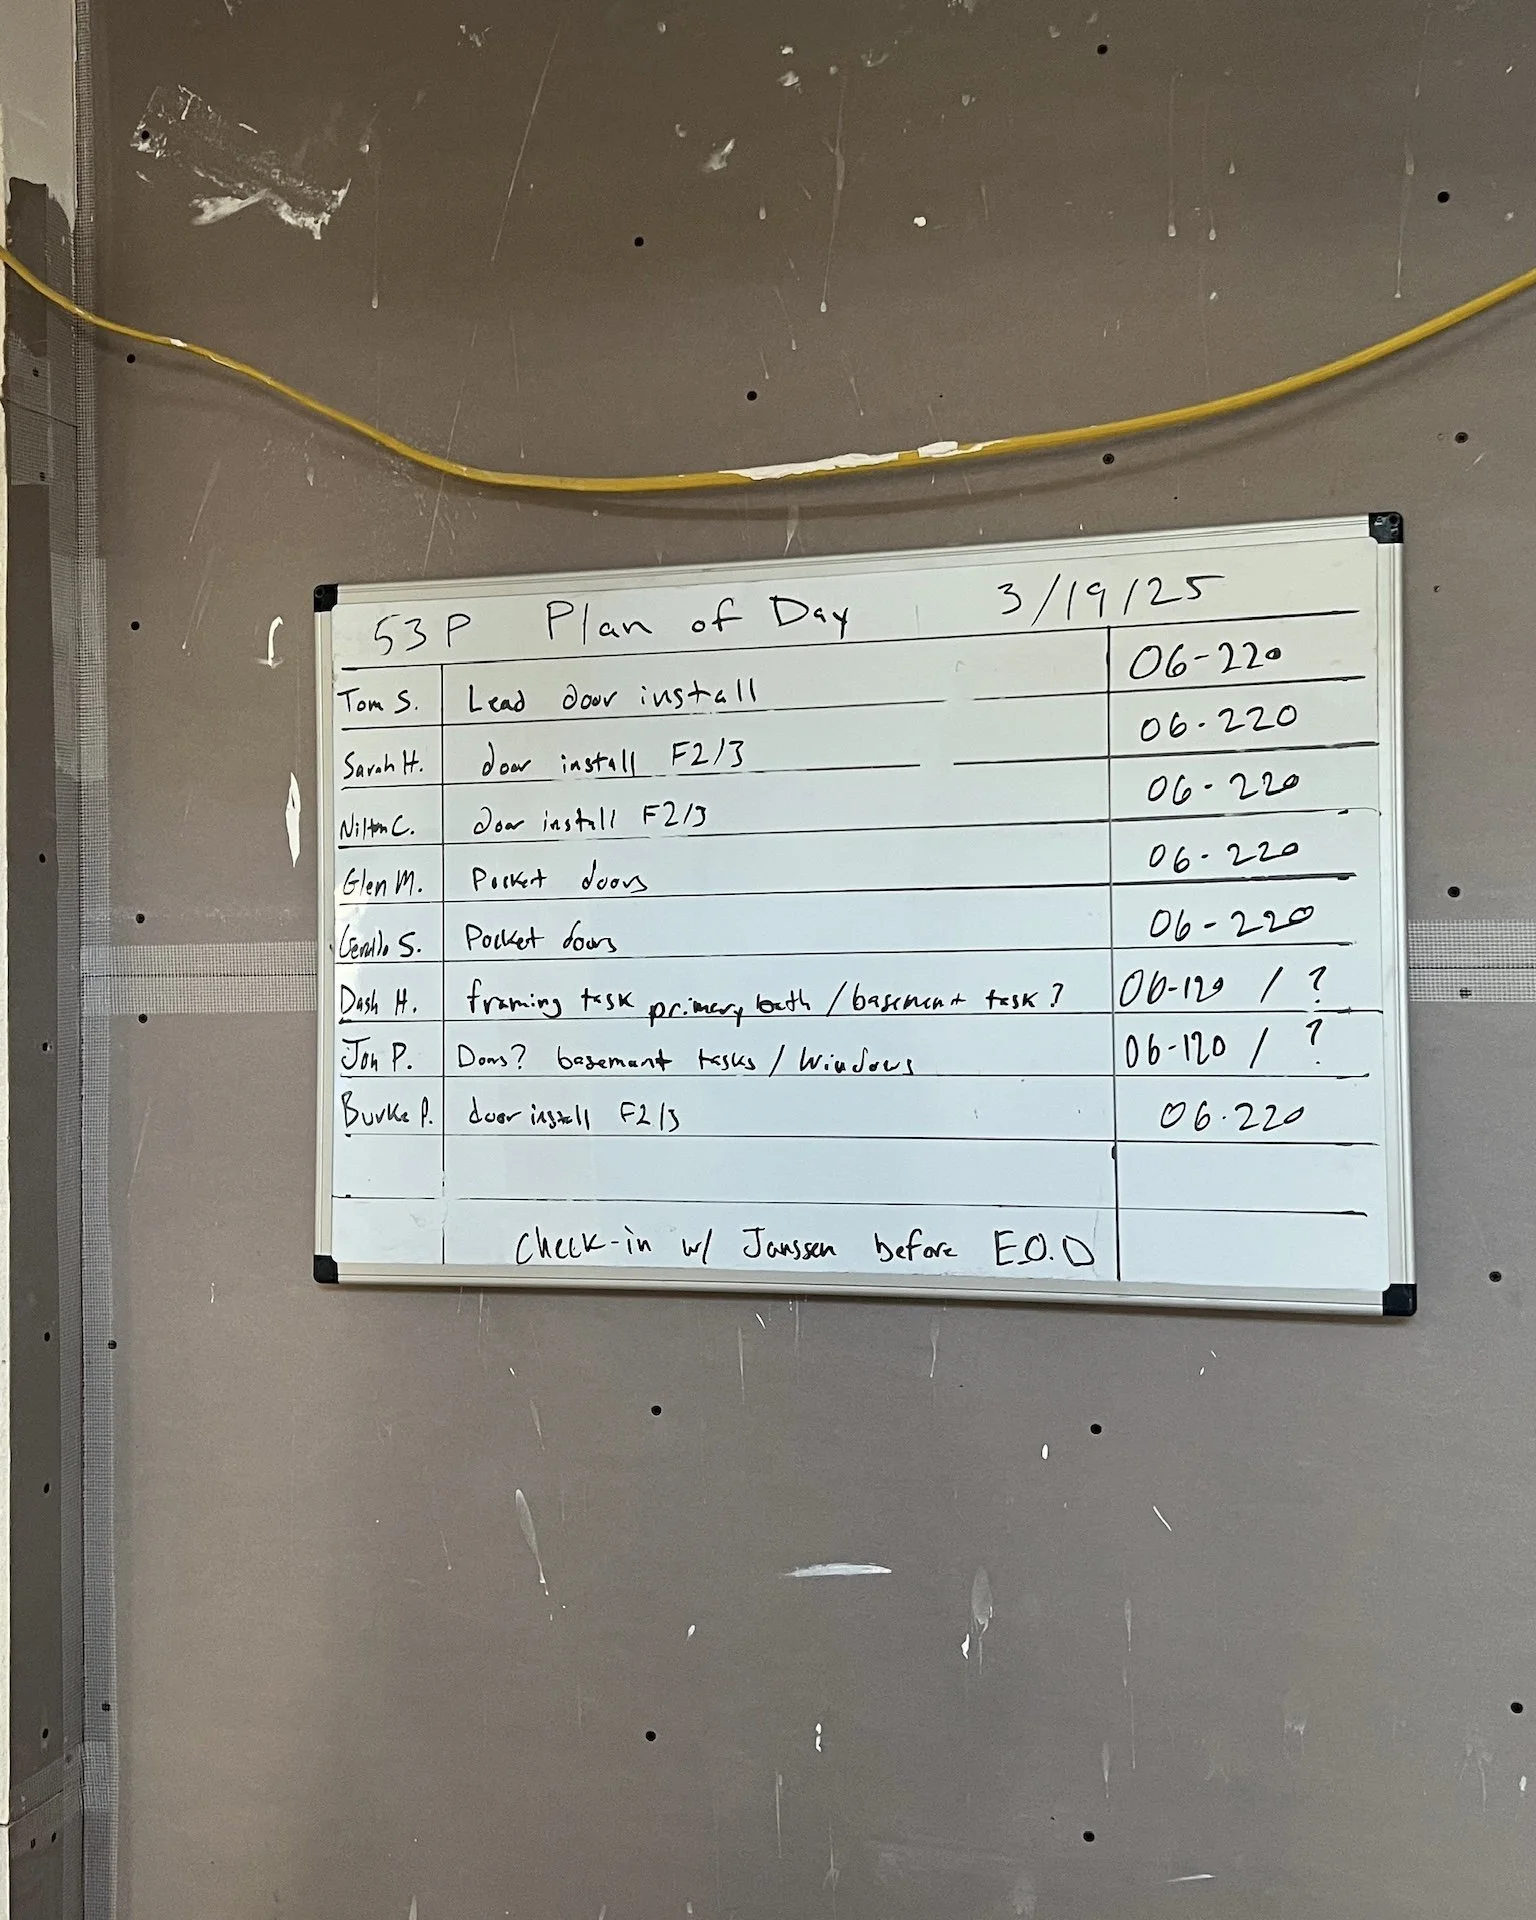 53P Plan of Day 3/19/25
Tom S. Lead door install 06-220
Sarah H. door install F2/3 06-220
Nilton C. door install F2/3 06-220
Glen M. Pocket doors 06-220
S. Pocket doors 06-220
Dash H. framing task primary bath / basement task? 06-120 / ?
Jon P. Doors? basement tasks / Windows 06-120 / ?
Burke P. door install F2/3 06-220
Check-in w/ Janssen before E.O.D